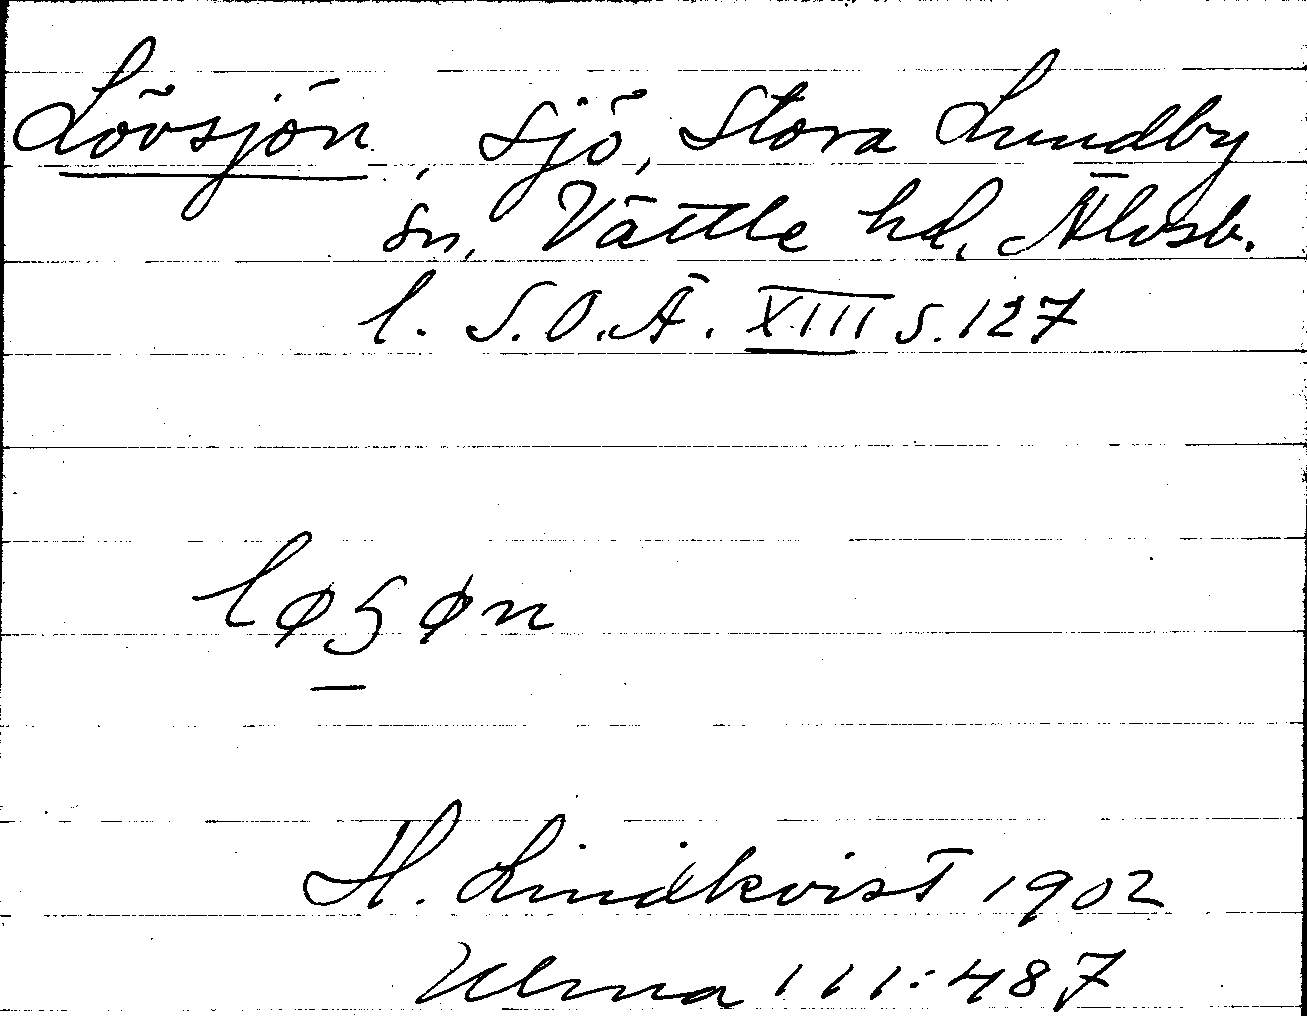 Lövsjön, sjö, Stora Lundby
sn, Vättle hd, Älvsb.
l. S.O.Ä. XIII s. 127
løʂøn
H. Lindkvist 1902
Ulma 111:487